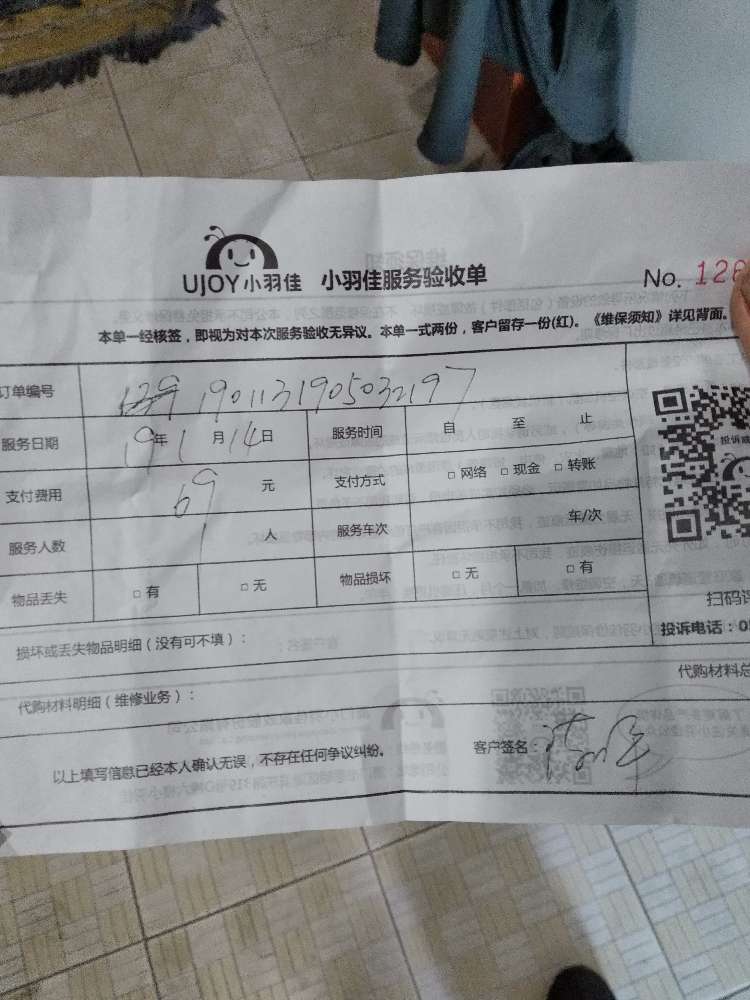 UJOY小羽佳 小羽佳服务验收单
No. 126
本单一经核签，即视为对本次服务验收无异议。本单一式两份，客户留存一份(红)。《维保须知》详见背面。
订单编号 1901131905032197
服务日期 19年1月14日 服务时间 自 至 止
支付费用 69元 支付方式 □ 网络 □ 现金 □ 转账
服务人数 1人 服务车次 车/次
物品丢失 □ 有 □ 无 物品损坏 □ 无 □ 有
扫码
损坏或丢失物品明细（没有可不填）：
投诉电话：05
代购材料明细（维修业务）：
代购材料总
以上填写信息已经本人确认无误，不存在任何争议纠纷。
客户签名：